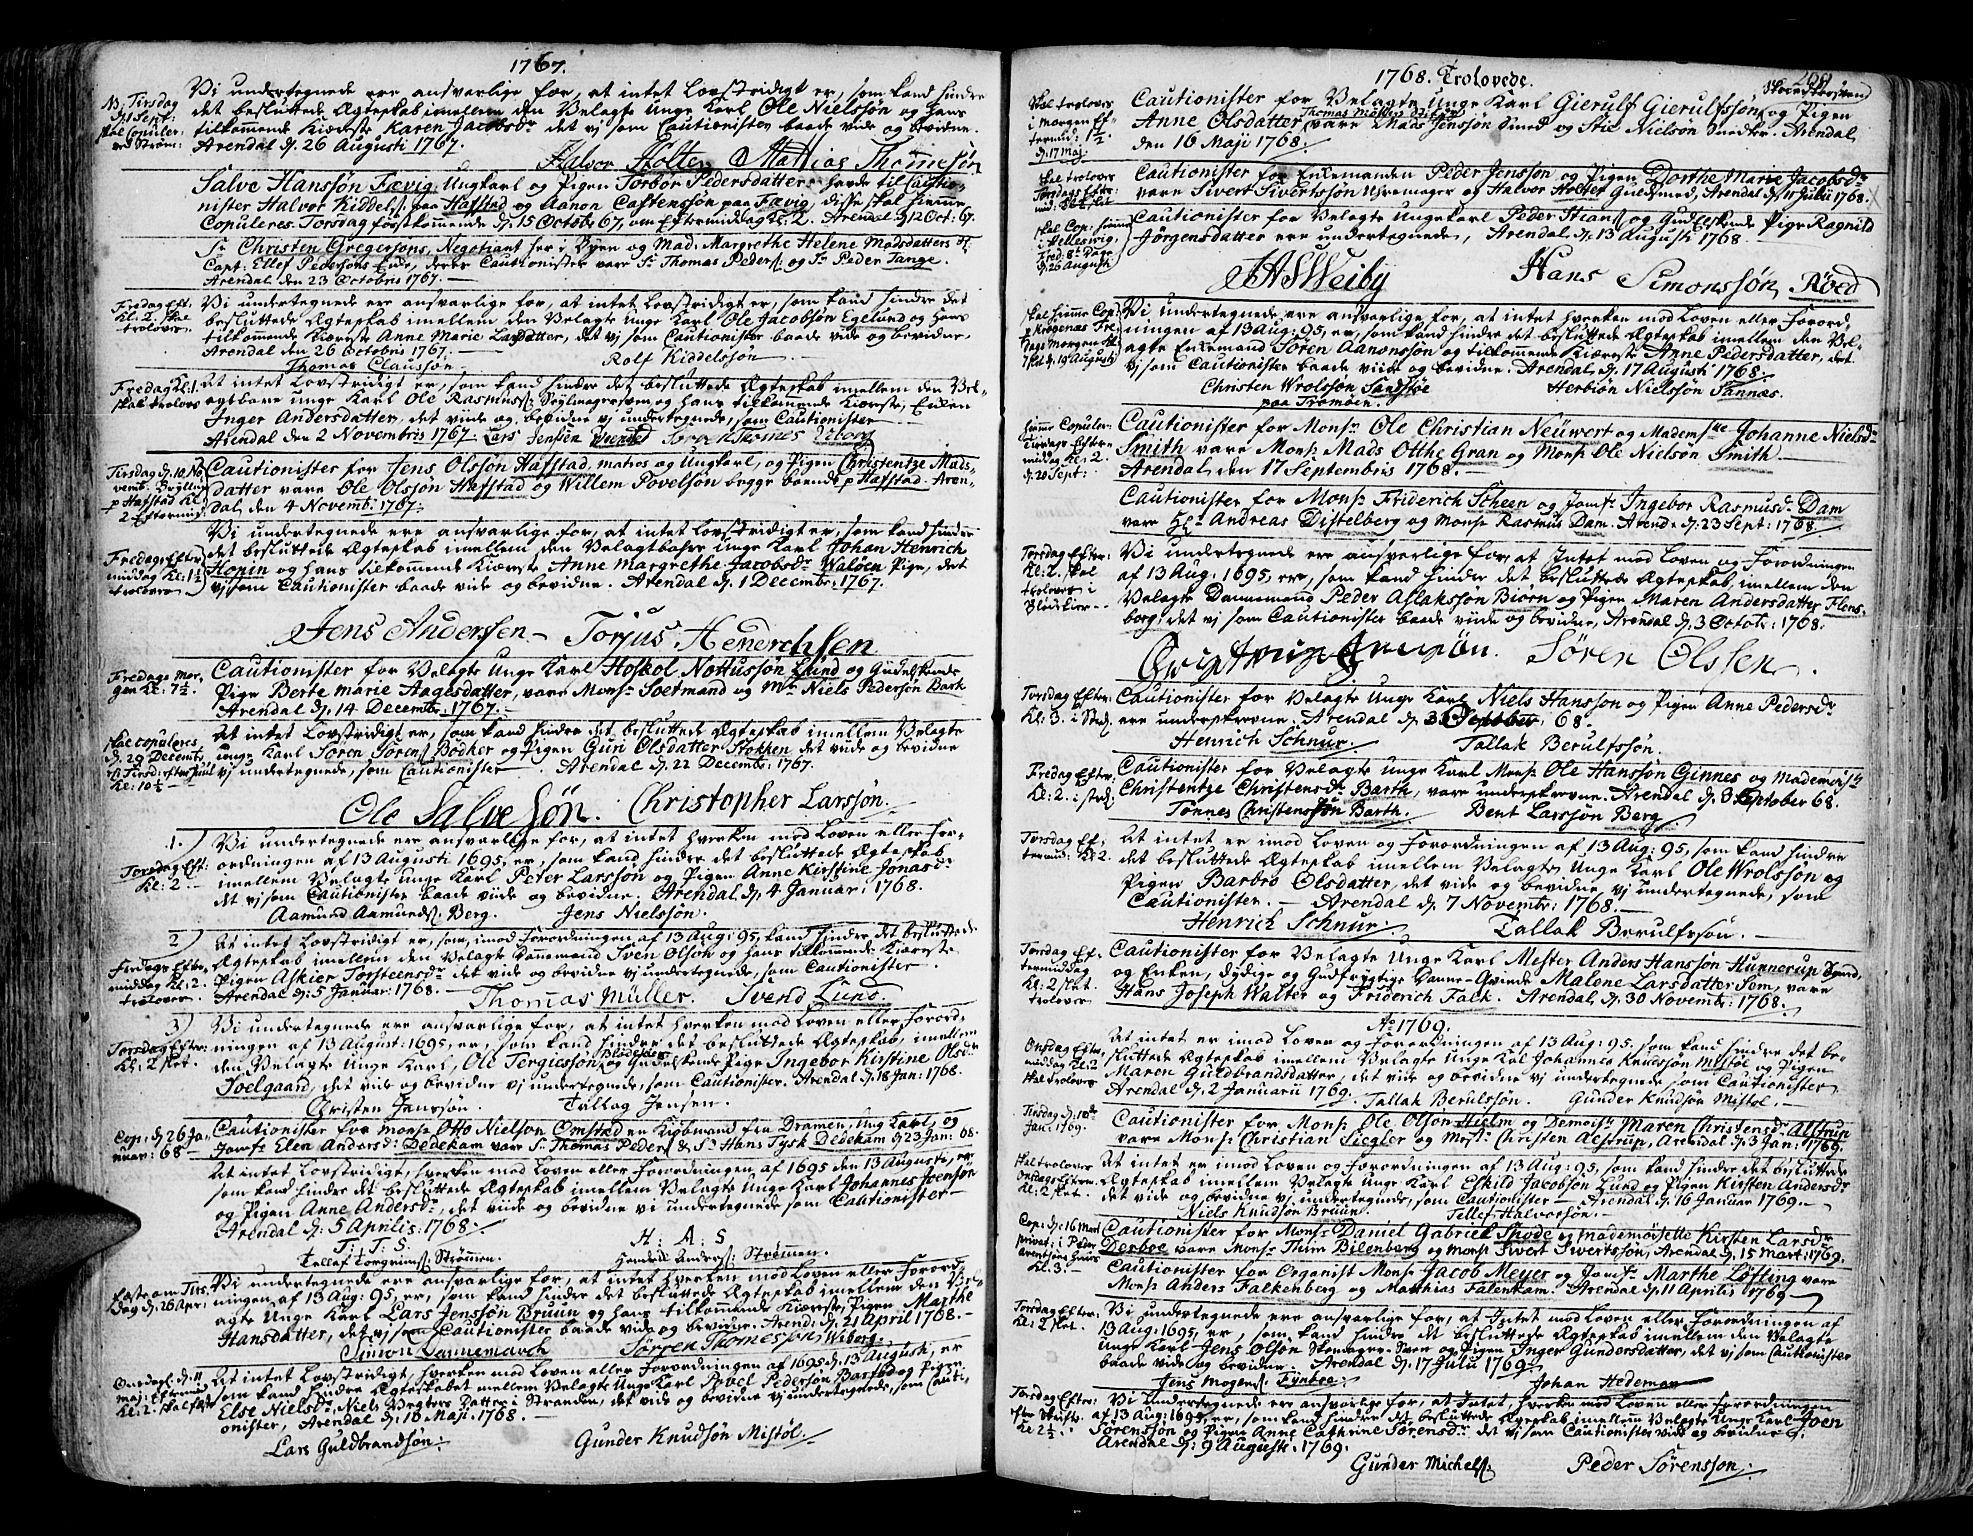 1767.
N. Tirsdag
Vi undertegnede ere ansvarlige for, at intet Lovstridigt er, som kand hindre
det besluttede Ægteskab imellem den Velagte Unge Karl Ole Nielssøn og Hans
tilkommende Kiæreste Karen Jacobsdr. det vj som Cautionister baade vide og bevidne.
Arendal d. 26 Augusti 1767.
Halvor Holte Mathias Thomessøn
Salve Hanssøn Fævig Ungkarl og Pigen Torbor Pedersdatter havde til Cautio-
nister Halvor Kiddels. paa Hafstad og Aanon Castenssøn paa Fævig, disse skal hiemme
Copuleres Torsdag førstkommende d. 15 Octobr 67, om Eftermiddag Kl. 2. Arendal d. 12 Oct: 67.
Sr. Christen Gregersons, Negotiant her i Byen og Mad. Margrethe Helene Madsdatters
Capt: Ellef Pedersøns Enke, deres Cautionister vare Sr. Thomas Peders. og Sr. Peder Tange.
Arendal den 23 Octobris 1767.
Fredag Eft.
Kl. 2. skal
troloves
Vi undertegnede ere ansvarlige for, at intet Lovstridigt er, som kand hindre det
besluttede Ægteskab imellem den Velagte unge Karl Ole Jacobsøn Egelund og hans
tilkommende Kiæreste Anne Marie Larsdatter, det vj som Cautionister baade vide og bevidne,
Arendal den 26 Octobris 1767.
Thomas Claussøn. Rolf Kiddelssøn
Fredag Kl. 1.
skal trolovs
At intet Lovstridigt er, som kand hindre det besluttede Ægteskab imellem den Vel-
agtbare unge Karl Ole Rasmuss. Seylmagersvend og hans tilkommende Kiæreste, Enken
Inger Andersdatter, det viide og bevidne vj undertegnede, som Cautionister
Arendal den 2 Novembris 1767. Lars Jenssen
Tirsdag d. 10 No-
vemb. Bryllup
p Hafstad Kl.
2 Eftermid.
Cautionister for Jens Olssøn Hafstad, matros og Ungkarl, og Pigen Christentze Mads-
datter vare Ole Olssøn Hafstad og Willem Povelsøn begge boende p Hafstad. Aren-
dal, den 4 Novemb. 1767.
Fredag Efter-
middag Kl: 1½
troloves
Vi undertegnede ere ansvarlige for, at intet Lovstridigt er, som kand hindre
det besluttede Ægteskab imellem den Velagtbahre unge Karl Johan Henrich
Hopin og hans tilkommende Kiæreste Anne Margrethe Jacobsdr. Waløen Pige, det
vj som Cautionister baade vide og bevidne. Arendal d. 1 Decembr. 1767.
Jens Andersen Torjus Hendrchsen
Fredags Mor-
gen Kl: 7½
Cautionister for Velagte Unge Karl Hoskol Nottussøn Elund og Gudelskende
Pige Berte Marie Aagesdatter, vare Monsr. Soetmand og Mr. Niels Pedersøn Bark
Arendal d. 14 Decembr. 1767.
skal copuleres
d. 29 Decembr.
Kl: 10½
At intet Lovstridigt er, som kand hindre det besluttede Ægteskab imellem Velagte
unge Karl Søren Sørens. Bødker og Pigen Guri Olsdatter Stokken det viide og bevidne
vj undertegnede, som Cautionister. Arendal d. 22 Decembr: 1767.
Ole Salvesøn. Christopher Larssøn.
1.
Torsdag Eft:
Kl: 2
Vi undertegnede ere ansvarlige for, at intet hverken mod Loven eller For-
ordningen af 13 Augusti 1695, er, som kand hindre det besluttede Ægteskab
imellem Velagte unge Karl Peter Larssøn og Pigen Anne Kirstine Jonasdr.
det vj som Cautionister baade viide og bevidne. Arendal d. 4 Januar: 1768.
Aamund Aamunds. Berg. Jens Nielssøn.
2
Fredags Efter-
middag Kl: 2.
troloves.
At intet Lovstridigt er, som, imod Forordningen af 13 Aug: 95, kand hindre det besluttede
Ægteskab imellem den Velagte Dannemand Sven Olsøn og hans tilkommende Kiæreste
Pigen Askier Torsteensdr. det vide og bevidne vj undertegnede, som Cautionister.
Arendal d: 5 Januar: 1768.
Thomas Müller. Svend Lund
3
Torsdag Efter:
Kl: 2 slet.
Vi undertegnede ere ansvarlige for, at intet hverken mod Loven eller Forord-
ningen af 13 August: 1695, er, som kand hindre det besluttede Ægteskab, imellem
den Velagte Unge Karl, Ole Tergiussøn og Gudelskende Pige Ingebor Kirstine Olsdr.
Soelgaard, det vide og bevidne vj undertegnede, som Cautionister. Arendal d. 18 Jan: 1768.
Christen Jenssøn. Tallag Jensen.
Cop: d. 26 Ja-
nuar: 68
Cautionister for monsr. Otto Nielson Omsted en Kiøbmand fra Dramen, Ung Karl og
Jomfr. Elen Andersdr. Dedekam var Sr. Thomas Peders. & Sr. Hans Tysk Dedekam d. 23 Jan: 68.
At intet Lovstridigt, hverken mod Loven eller Forordningen af 1695 den 13 Augusti, er,
som kand hindre det besluttede Ægteskab imellem Velagte Unge Karl Johannes Svensøn
og Pigen Anne Andersdr., det vide og bevidne vi undertegnede som Cautionister
Arendal d. 5 Aprilis 1768.
T. T. S. H: A: S
Tellef Torgrims. Strømmen. Hendrick Anders. Strømmen.
Fæste om Tirs-
dag d. 26 Apr:
Vi undertegnede ere ansvarlige for, at intet hverken mod Loven eller Forord-
ningen af 13 Aug: 95, er, som kand hindre det besluttede Ægteskab imellem den Vel-
agte Unge Karl Lars Jenssøn Bruun og hans tilkommende Kiæreste Pigen Marthe
Hansdatter, det vj som Cautionister baade vide og bevidne. Arend. d. 21 April 1768.
Simon Dannemarch Sørren Thomessøn Wiborg.
Onsdag d. 11
maj: Eftermid
Kl: 2. skal fæste
At intet Lovstridigt, hverken mod Loven eller Forordningen af 1695 d. 13 Augusti, er
som kand hindre Ægteskabet imellem Velagte Unge Karl Povel Pedersøn Barsøe og Pigen
Else Nielsdr. Niels Vegters Datter i Stranden, det vide og bevidne vj undertegnede, som Cauti-
onister, Arendal d. 10 Maji 1768.
Lars Guldbrandsøn. Gunder Knudsøn Mistøl.
1768. Trolovede.
Skal troloves
i morgen Ef-
termid: 1½
d. 17 Maj.
Cautionister for Velagte Unge Karl Gierulf Gierulfssøn og Pigen
Anne Olsdatter vare Mads Jenssøn Smed og Stie Nielsøn Snedker. Arendal
den 16 Maji 1768.
Cautionister for Enkemanden Peder Jenssøn og Pigen Dorthe Marie Jacobsdr.
vare Sivert Sivertssøn Uhremager og Halvor Holter Guldsmed, Arendal d. 11 Julii 1768.
Skal Cop. hiemme
i Hellesvig,
Fred: 8te Dage
d. 26 August
Cautionister for Velagte Ungekarl Peder Stians. og Gudelskende Pige Ragnild
Jørgensdatter ere undertegnede, Arendal d. 13 Augusti 1768.
JASWeiby Hans Simonssøn Røed
Skal hiemme Cop:
p. Krøgenæs Fre-
dags Morgen Kl.
7 slet d. 19 Augusti
Vi undertegnede ere ansvarlige for, at intet hverken mod Loven eller Forord-
ningen af 13 Aug: 95, er, som kand hindre det besluttede Ægteskab imellem den Vel-
agte Enkemand Søren Aanonssøn og tilkommende Kiæreste Anne Pedersdatter, det
vj som Cautionister baade viide og bevidne. Arendal d. 17 Augusti 1768.
Christen Wrolssøn Sandstøe Herbiøn Nielssøn Sannæs.
paa Tromøen.
hiemme Copuler:
Tirsdags Efter-
middag Kl: 2.
d. 20 Sept:
Cautionister for Monsr. Ole Christian Neuwert og Mademslle. Johanne Nielsdr.
Smith vare Monsr. Mads Otthe Gran og Monsr. Ole Nielsøn Smith
Arendal, den 17 Septembris 1768.
Cautionister for Monsr. Friderich Scheen og Jomfr. Ingebor Rasmusdr. Dam
vare Hr. Andreas Distelberg og Monsr. Rasmus Dam. Arend. d. 23 Sept: 1768.
Torsdag Efter:
Kl: 2. skal
troloves i
Vi undertegnede ere ansvarlige for, at Intet mod Loven og Forordningen
af 13 Aug: 1695, er, som kand hindre det besluttede Ægteskab, imellem den
Velagte Dannemand Peder Aslakssøn Biørn og Pigen Maren Andersdatter Flens-
borg, det vj som Cautionister baade vide og bevidne, Arendal d. 3 Octobr: 1768.
Søren Olssen.
Torsdag Efter:
Kl: 3. i Sted.
Cautionister for Velagte Unge Karl Niels Hansson og Pigen Anne Pedersdr.
ere underskrevne. Arendal d. 68.
Henrich Schnur. Tallak Berulfssøn.
Fredag Efter.
Kl: 2. i sted.
Cautionister for Velagte Unge Karl Monsr. Ole Hanssøn Ginnes og Mademoislle
Christentze Christensdr. Barth, vare underskrevne. Arendal d. 68.
Tønnes Christenssøn Barth. Bent Larssøn Berg
Torsdag Ef-
termid: Kl: 2.
At intet er imod Loven og Forordningen af 13 Aug: 95, som kand hindre
det besluttede Ægteskab imellem Velagte Unge Karl Ole Wrolssøn og
Pigen Barbro Olsdatter, det vide og bevidne, vj undertegnede, som
Cautionister. Arendal d. 7 Novembr: 1768.
Henrich Schnur Tallak Berulfssøn.
Torsdag Ef-
termiddag
Kl: 2 slet.
troloves.
Cautionister for Velagte Unge Karl Mester Anders Hanssøn Hunnerup
og Enken, Dydige og Gudfrygtige Danne-Qvinde Malene Larsdatter Søm, vare
Hans Joseph Walter og Friderich Falk. Arendal d. 30 Novembr: 1768.
Ao. 1769.
Onsdag Efter-
middag Kl: 2
skal trolovs
At intet er imod Loven og Forordningen af 13 Aug: 95. som kand hindre det be-
sluttede Ægteskab imellem Velagte Unge Karl Johannes Knudssøn Mistøl og Pigen
Maren Guldbrandsdatter, det vide og bevidne vj undertegnede som Cautionister
Arendal d. 2 Januarii 1769. Tallak Berulsøn. Gunder Knudsøn Mistøl.
Tirsdag d. 10de
Jan: 1769.
Cautionister for Monsr. Ole Olsøn Hielm og Demoisl. Maren Christensdr. Alstrup
vare Monsr. Christian Siegler og Mestr. Christen Alstrup, Arendal d. 3 Jan: 1769.
skal troloves
Onsdags Efterm.
Kl: 2 slet.
At intet er imod Loven og Forordningen af 13 Aug: 95, som kand hindre det besluttede
Ægteskab imellem Velagte Unge Karl Eskild Jacobsøn Lund og Pigen Kirsten Andersdr.
det vide og bevidne vj. undertegnede, som Cautionister. Arendal d. 16 Januar 1769.
Niels Knudsøn Bruun. Tellef Halvorsøn.
Cop: d. 16 Mart
privat, i Peder
Arentsøns Huus
Kl: 3.
Cautionister for Monsr. Daniel Gabriel Spode og Mademoiselle Kirsten Larsdr.
Derboe vare Monsr. Thim Bilenberg og Monsr. Sivert Sivertsøn, Arendal d. 15 Mart: 1769.
Cautionister for Organist Monsr. Jacob Meyer og Jomfr. Marthe Løfling vare
Monsr. Anders Falkenberg og Matthias Falenkam. Arendal d. 11 Aprilis 1769
Torsdag Efter:
Kl: 2 slet.
Vi undertegnede ere ansvarlige for, at Intet mod Loven eller Forordningen af
13 Aug: 1695, er, som kand hindre det besluttede Ægteskab imellem den Velagte
Unge Karl Jens Olsøn og Pigen Inger Gundersdatter, det vj som Cautionister
baade vide og bevidne. Arendal d. 17 Julii 1769.
Jens Mogens. Fynboe. Johan Hedeman
Torsdag Efter:
Kl 2½
Vi undertegnede ere ansvarlige for, at Intet, hverken mod Loven eller Forordningen
af 13 Aug: 1695, er, som kand hindre det besluttede Ægteskab imellem Velagte Unge Karl Joen
Sørenssøn og Pigen Anne Cathrine Sørensdr. det vj som Cautionister vide og bevidne.
Arendal d: 9 Augusti. 1769.
Gunder Michels. Peder Sørenssøn